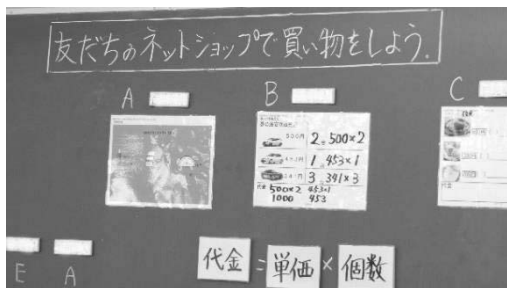 友だちのネットショップで買い物をしよう.
A
B
C
500円
2. 500×2
1. 453×1
3. 341×3
代金 500×2 453×1
1000 453
E A
代金 = 単価 × 個数